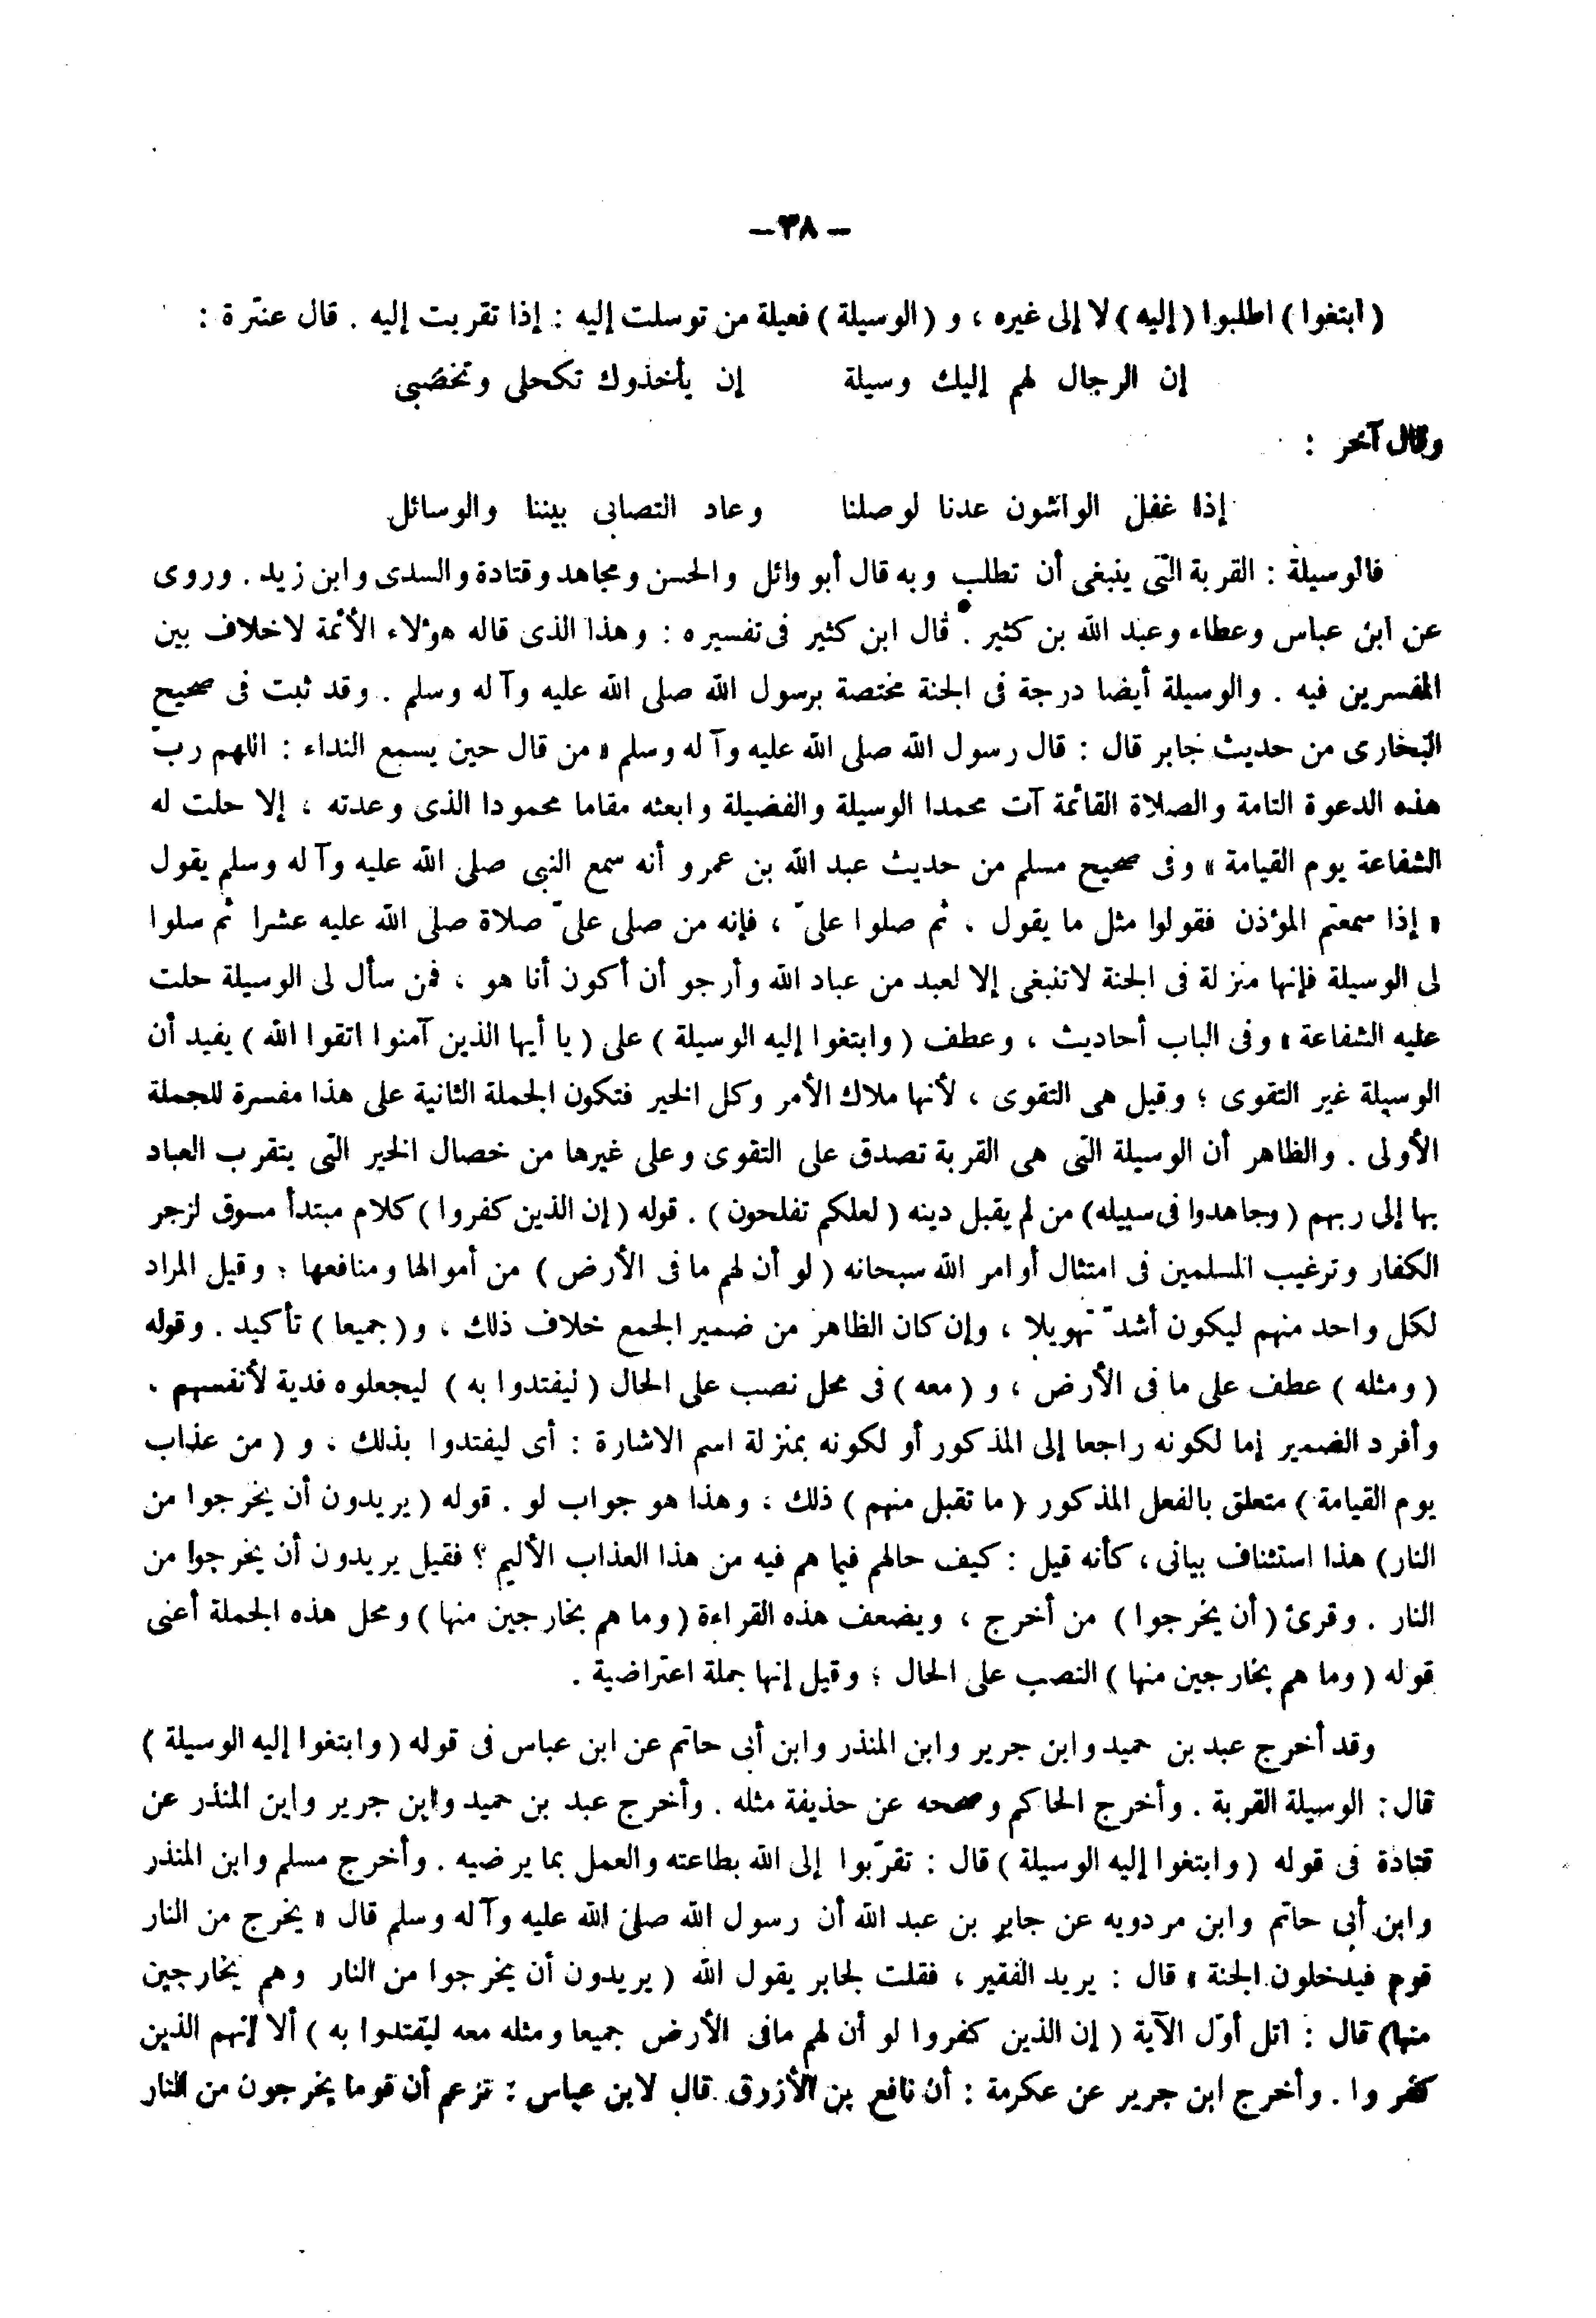 – ٣٨ –
( ابتغوا ) اطلبوا ( إليه ) لا إلى غيره ، و ( الوسيلة ) فعيلة من توسلت إليه : إذا تقربت إليه . قال عنترة :
إن الرجال لهم إليك وسيلة إن يأخذوك تكحلى وتخضبى
وقال آخر :
إذا غفل الواشون عدنا لوصلنا وعاد التصابى بيننا والوسائل
فالوسيلة : القربة التى ينبغى أن تطلب وبه قال أبو وائل والحسن ومجاهد وقتادة والسدى وابن زيد . وروى
عن ابن عباس وعطاء وعبد الله بن كثير . قال ابن كثير فى تفسيره : وهذا الذى قاله هؤلاء الأئمة لاخلاف بين
المفسرين فيه . والوسيلة أيضا درجة فى الجنة مختصة برسول الله صلى الله عليه وآله وسلم . وقد ثبت فى صحيح
البخارى من حديث جابر قال : قال رسول الله صلى الله عليه وآله وسلم « من قال حين يسمع النداء : اللهم ربّ
هذه الدعوة التامة والصلاة القائمة آت محمدا الوسيلة والفضيلة وابعثه مقاما محمودا الذى وعدته ، إلا حلت له
الشفاعة يوم القيامة » وفى صحيح مسلم من حديث عبد الله بن عمرو أنه سمع النبى صلى الله عليه وآله وسلم يقول
« إذا سمعتم المؤذن فقولوا مثل ما يقول ، ثم صلوا علىّ ، فإنه من صلى علىّ صلاة صلى الله عليه عشرا ثم سلوا
لى الوسيلة فإنها منزلة فى الجنة لاتنبغى إلا لعبد من عباد الله وأرجو أن أكون أنا هو ، فمن سأل لى الوسيلة حلت
عليه الشفاعة » وفى الباب أحاديث ، وعطف ( وابتغوا إليه الوسيلة ) على ( يا أيها الذين آمنوا اتقوا الله ) يفيد أن
الوسيلة غير التقوى ؛ وقيل هى التقوى ، لأنها ملاك الأمر وكل الخير فتكون الجملة الثانية على هذا مفسرة للجملة
الأولى . والظاهر أن الوسيلة التى هى القربة تصدق على التقوى وعلى غيرها من خصال الخير التى يتقرب العباد
بها إلى ربهم ( وجاهدوا فى سبيله ) من لم يقبل دينه ( لعلكم تفلحون ) . قوله ( إن الذين كفروا ) كلام مبتدأ مسوق لزجر
الكفار وترغيب المسلمين فى امتثال أوامر الله سبحانه ( لو أن لهم ما فى الأرض ) من أموالها ومنافعها ؛ وقيل المراد
لكل واحد منهم ليكون أشدّ تهويلا ، وإن كان الظاهر من ضمير الجمع خلاف ذلك ، و ( جميعا ) تأكيد . وقوله
( ومثله ) عطف على ما فى الأرض ، و ( معه ) فى محل نصب على الحال ( ليفتدوا به ) ليجعلوه فدية لأنفسهم .
وأفرد الضمير إما لكونه راجعا إلى المذكور أو لكونه بمنزلة اسم الاشارة : أى ليفتدوا بذلك ، و ( من عذاب
يوم القيامة ) متعلق بالفعل المذكور ( ما تقبل منهم ) ذلك ، وهذا هو جواب لو . قوله ( يريدون أن يخرجوا من
النار ) هذا استئناف بيانى ، كأنه قيل : كيف حالهم فيما هم فيه من هذا العذاب الأليم ؟ فقيل يريدون أن يخرجوا من
النار . وقرئ ( أن يخرجوا ) من أخرج ، ويضعف هذه القراءة ( وما هم بخارجين منها ) ومحل هذه الجملة أعنى
قوله ( وما هم بخارجين منها ) النصب على الحال ؛ وقيل إنها جملة اعتراضية .
وقد أخرج عبد بن حميد وابن جرير وابن المنذر وابن أبى حاتم عن ابن عباس فى قوله ( وابتغوا إليه الوسيلة )
قال : الوسيلة القربة . وأخرج الحاكم وصححه عن حذيفة مثله . وأخرج عبد بن حميد وابن جرير وابن المنذر عن
قتادة فى قوله ( وابتغوا إليه الوسيلة ) قال : تقرّبوا إلى الله بطاعته والعمل بما يرضيه . وأخرج مسلم وابن المنذر
وابن أبى حاتم وابن مردويه عن جابر بن عبد الله أن رسول الله صلى الله عليه وآله وسلم قال « يخرج من النار
قوم فيدخلون الجنة » قال : يريد الفقير ، فقلت لجابر يقول الله ( يريدون أن يخرجوا من النار وهم بخارجين
منها ) قال : اتل أوّل الآية ( إن الذين كفروا لو أن لهم مافى الأرض جميعا ومثله معه ليفتدوا به ) ألا إنهم الذين
كفروا . وأخرج ابن جرير عن عكرمة : أن نافع بن الأزرق قال لابن عباس : تزعم أن قوما يخرجون من النار